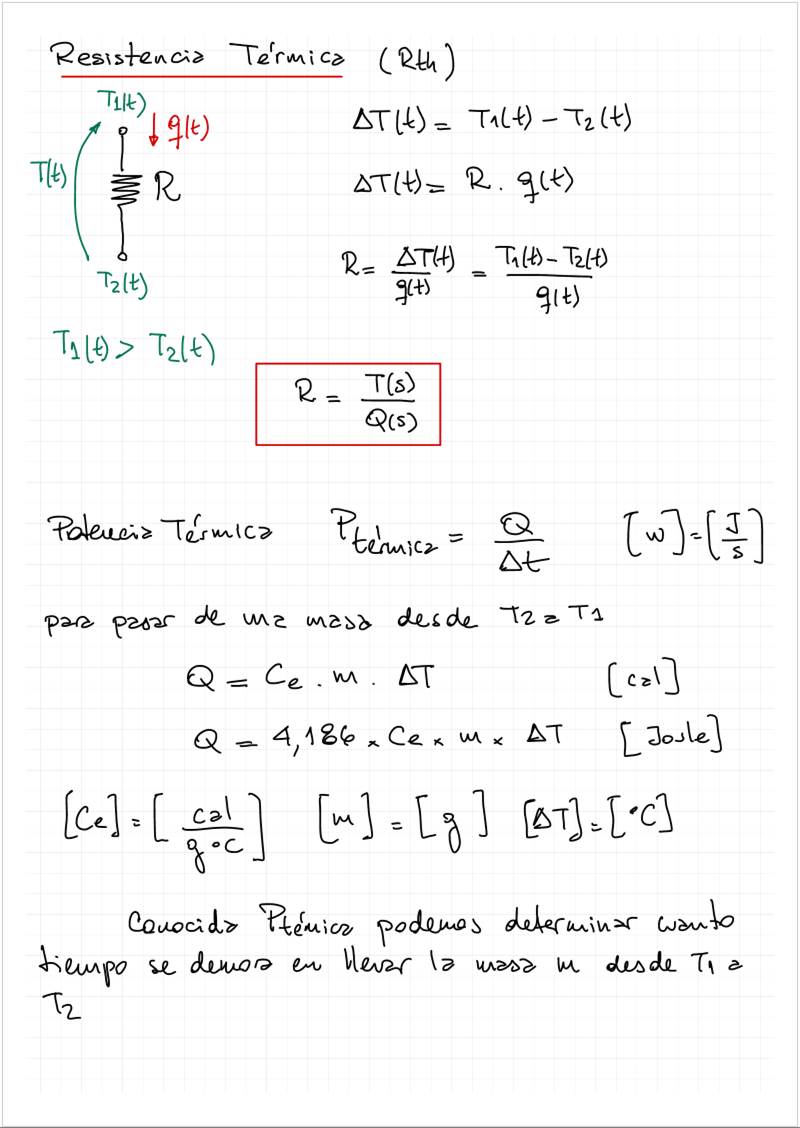 Resistencia Térmica (Rth)
T1(t)
q(t)
T(t)
R
T2(t)
ΔT(t) = T1(t) - T2(t)
ΔT(t) = R . q(t)
R = ΔT(t)/q(t) = (T1(t) - T2(t))/q(t)
T1(t) > T2(t)
R = T(s)/Q(s)
Potencia Térmica Ptérmica = Q/Δt [w] = [J/s]
para pasar de una masa desde T2 a T1
Q = Ce . m . ΔT [cal]
Q = 4,186 x Ce x m x ΔT [Joule]
[Ce] = [cal/g °C] [m] = [g] [ΔT] = [°C]
Conocida Ptémica podemos determinar cuanto
tiempo se demora en llevar la masa m desde T1 a
T2